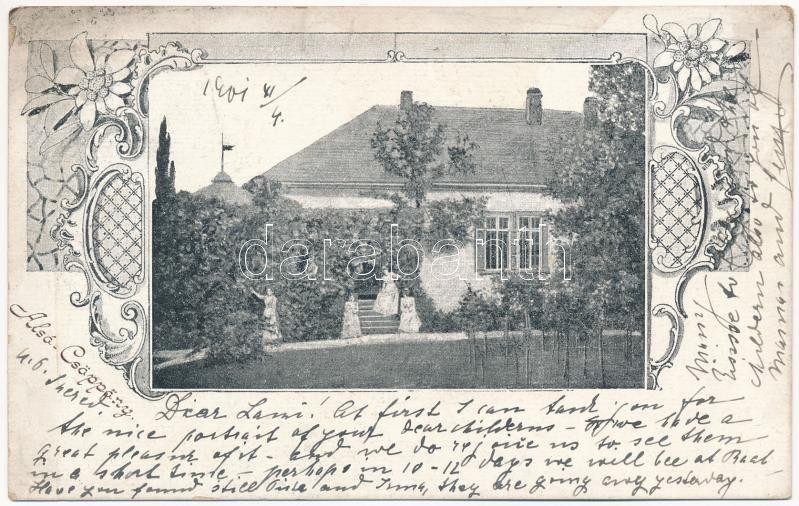 1901 XI/4.
Alsó Csöppöny.
u. b. Sacred.
Dear Lami! At first I can tank you for
the nice portrait of your dear childerns - we have a
great pleasing of it - and we do rejoice us to see them
in a short time - perhaps in 10-12 days we will bee at Baab
Have you found still and Irma, they are going awy yesterday.
Kisses to
childern also to you
Mamas and
darabanth